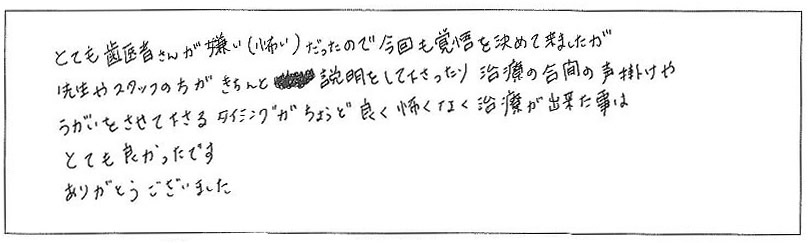 とても歯医者さんが嫌い(怖い)だったので今回も覚悟を決めて来ましたが
先生やスタッフの方がきちんと説明をして下さったり治療の合間の声掛けや
うがいをさせて下さるタイミングがちょうど良く怖くなく治療が出来た事は
とても良かったです
ありがとうございました